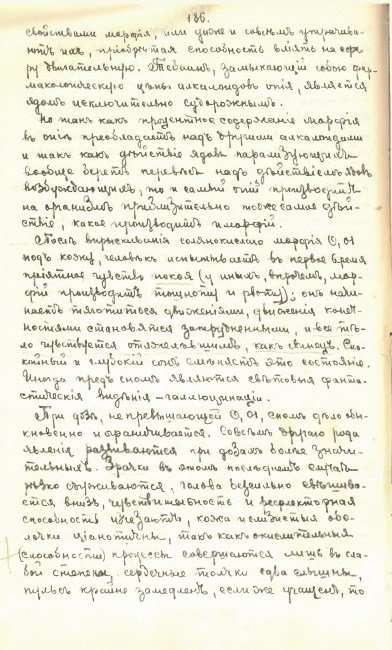 186.
свойствами морфія, или даже и совсѣмъ утрачива-
ютъ ихъ, пріобрѣтая способность вліять на сфе-
ру двигательную. Тебаинъ, замыкающій собою фар-
макологическую цѣпь алкалоидовъ опія, является
ядомъ исключительно судорожнымъ.
Но такъ какъ процентное содержаніе морфія
въ опіи преобладаетъ надъ другими алкалоидами
и такъ какъ дѣйствіе ядовъ парализующихъ
вообще беретъ перевѣсъ надъ дѣйствіемъ ядовъ
возбуждающихъ, то и самый опій производитъ
на организмъ приблизительно тоже самое дѣй-
ствіе, какое производитъ и морфій.
Послѣ впрыскиванія солянокислаго морфія 0,01
подъ кожу, человѣкъ испытываетъ въ первое время
пріятное чувство покоя (у иныхъ, впрочемъ, мор-
фій производитъ тошноту и рвоту); онъ начи-
наетъ тяготиться движеніями, движенія конеч-
ностями становятся затрудненными, и все тѣ-
ло чувствуется отяжелѣвшимъ, какъ свинецъ. Спо-
койный и глубокій сонъ смѣняетъ это состояніе.
Иногда предъ сномъ являются свѣтовыя фанта-
стическія видѣнія – галлюцинаціи.
При дозѣ, не превышающей 0,01, сномъ дѣло обы-
кновенно и ограничивается. Совсѣмъ другого рода
явленія развиваются при дозахъ болѣе значи-
тельныхъ. Зрачки въ этомъ послѣднемъ случаѣ
рѣзко съуживаются, голова безсильно свѣшива-
ется внизъ, чувствительность и рефлекторная
способность исчезаютъ, кожа и слизистыя обо-
лочки ціанотичны, такъ какъ окислительныя
(способности) процессы совершаются лишь въ сла-
бой степени; сердечные толчки едва слышны,
пульсъ крайне замедленъ, если же учащенъ, то